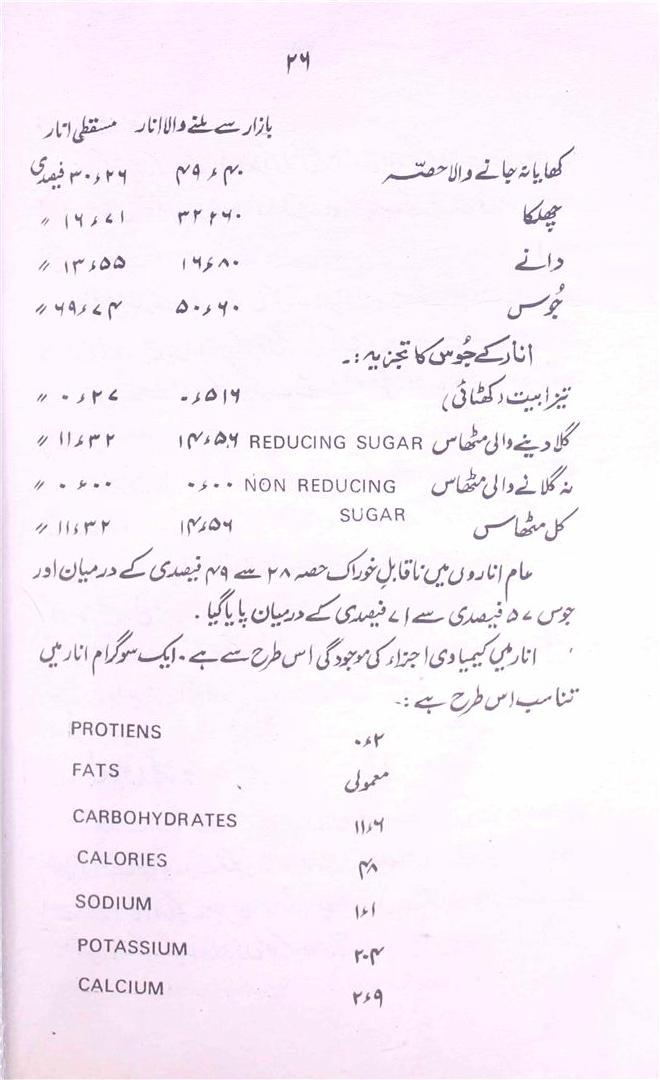 ۲۶
بازار سے ملنے والا انار مسقطی انار
کھایا نہ جانے والا حصّہ ۴۹ء۴۰ ۳۰ء۲۶ فیصدی
چھلکا ۳۲۲۶۰ ۱۶ء۷۱ 〃
دانے ۱۶ء۸۰ ۱۳ء۵۵ 〃
جُوس ۵۰ء۶۰ ۶۹ء۷۴ 〃
انار کے جُوس کا تجزیہ :۔
تیزابیت (کھٹائی) ۰ء۵۱۶ ۰ء۲۷ 〃
گلا دینے والی مٹھاس REDUCING SUGAR ۱۴ء۵۶ ۱۱ء۳۲ 〃
نہ گلانے والی مٹھاس NON REDUCING SUGAR ۰ء۰۰ ۰ء۶۰۰ 〃
کل مٹھاس ۱۴ء۵۶ ۱۱ء۳۲ 〃
عام اناروں میں ناقابلِ خوراک حصہ ۲۸ سے ۴۹ فیصدی کے درمیان اور
جوس ۵۷ فیصدی سے ۷۱ فیصدی کے درمیان پایا گیا .
انار میں کیمیاوی اجزاء کی موجودگی اس طرح سے ہے . ایک سو گرام انار میں
تناسب اس طرح ہے :۔
PROTIENS ۰ء۲
FATS معمولی
CARBOHYDRATES ۱۱ء۶
CALORIES ۴۸
SODIUM ۱ء۱
POTASSIUM ۲۰۴
CALCIUM ۲ء۹